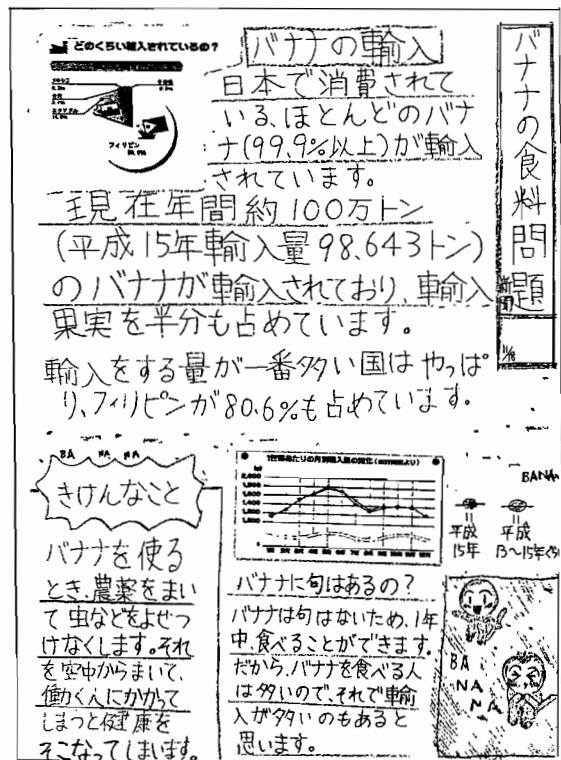 バナナの食料問題
新聞
どのくらい輸入されているの？
フィリピン
エクアドル
バナナの輸入
日本で消費されて
いる、ほとんどのバナ
ナ(99.9%以上)が輸入
されています。
現在年間約100万トン
(平成15年輸入量98,643トン)
のバナナが輸入されており、輸入
果実を半分も占めています。
輸入をする量が一番多い国はやっぱ
り、フィリピンが80.6%も占めています。
BA NA NA
きけんなこと
バナナを使る
とき、農薬をまい
て虫などをよせつ
けなくします。それ
を空中からまいて、
働く人にかかって
しまうと健康を
そこなってしまいます。
1世帯あたりの月別購入量の変化
2,000
BANA
平成
15年
平成
13〜15年ぐらい
バナナに旬はあるの？
バナナは旬はないため、1年
中、食べることができます。
だから、バナナを食べる人
は多いので、それで輸
入が多いのもあると
思います。
BA
NA
NA